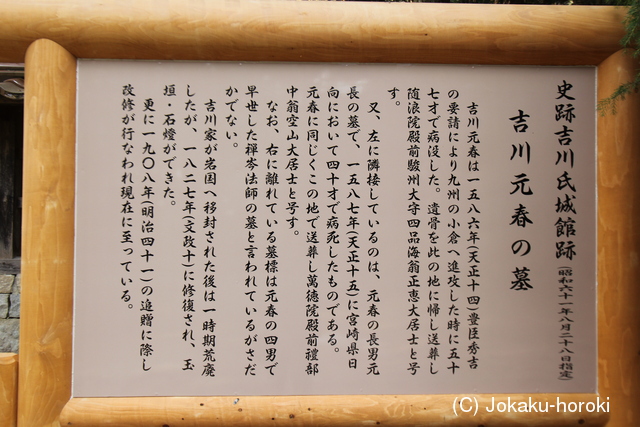 史跡吉川氏城館跡(昭和六十一年八月二十八日指定)
吉川元春の墓
吉川元春は一五八六年(天正十四)豊臣秀吉
の要請により九州の小倉へ進攻した時に五十
七才で病没した。遺骨を此の地に帰し送葬し
随浪院殿前駿州大守四品海翁正恵大居士と号
す。
又、左に隣接しているのは、元春の長男元
長の墓で、一五八七年(天正十五)に宮崎県日
向において四十才で病死したものである。
元春に同じくこの地で送葬し萬徳院殿前禮部
中翁空山大居士と号す。
なお、右に離れている墓標は元春の四男で
早世した禅岑法師の墓と言われているがさだ
かでない。
吉川家が岩国へ移封された後は一時期荒廃
したが、一八二七年(文政十)に修復され、玉
垣・石燈ができた。
更に一九〇八年(明治四十一)の追贈に際し
改修が行なわれ現在に至っている。
(C) Jokaku-horoki